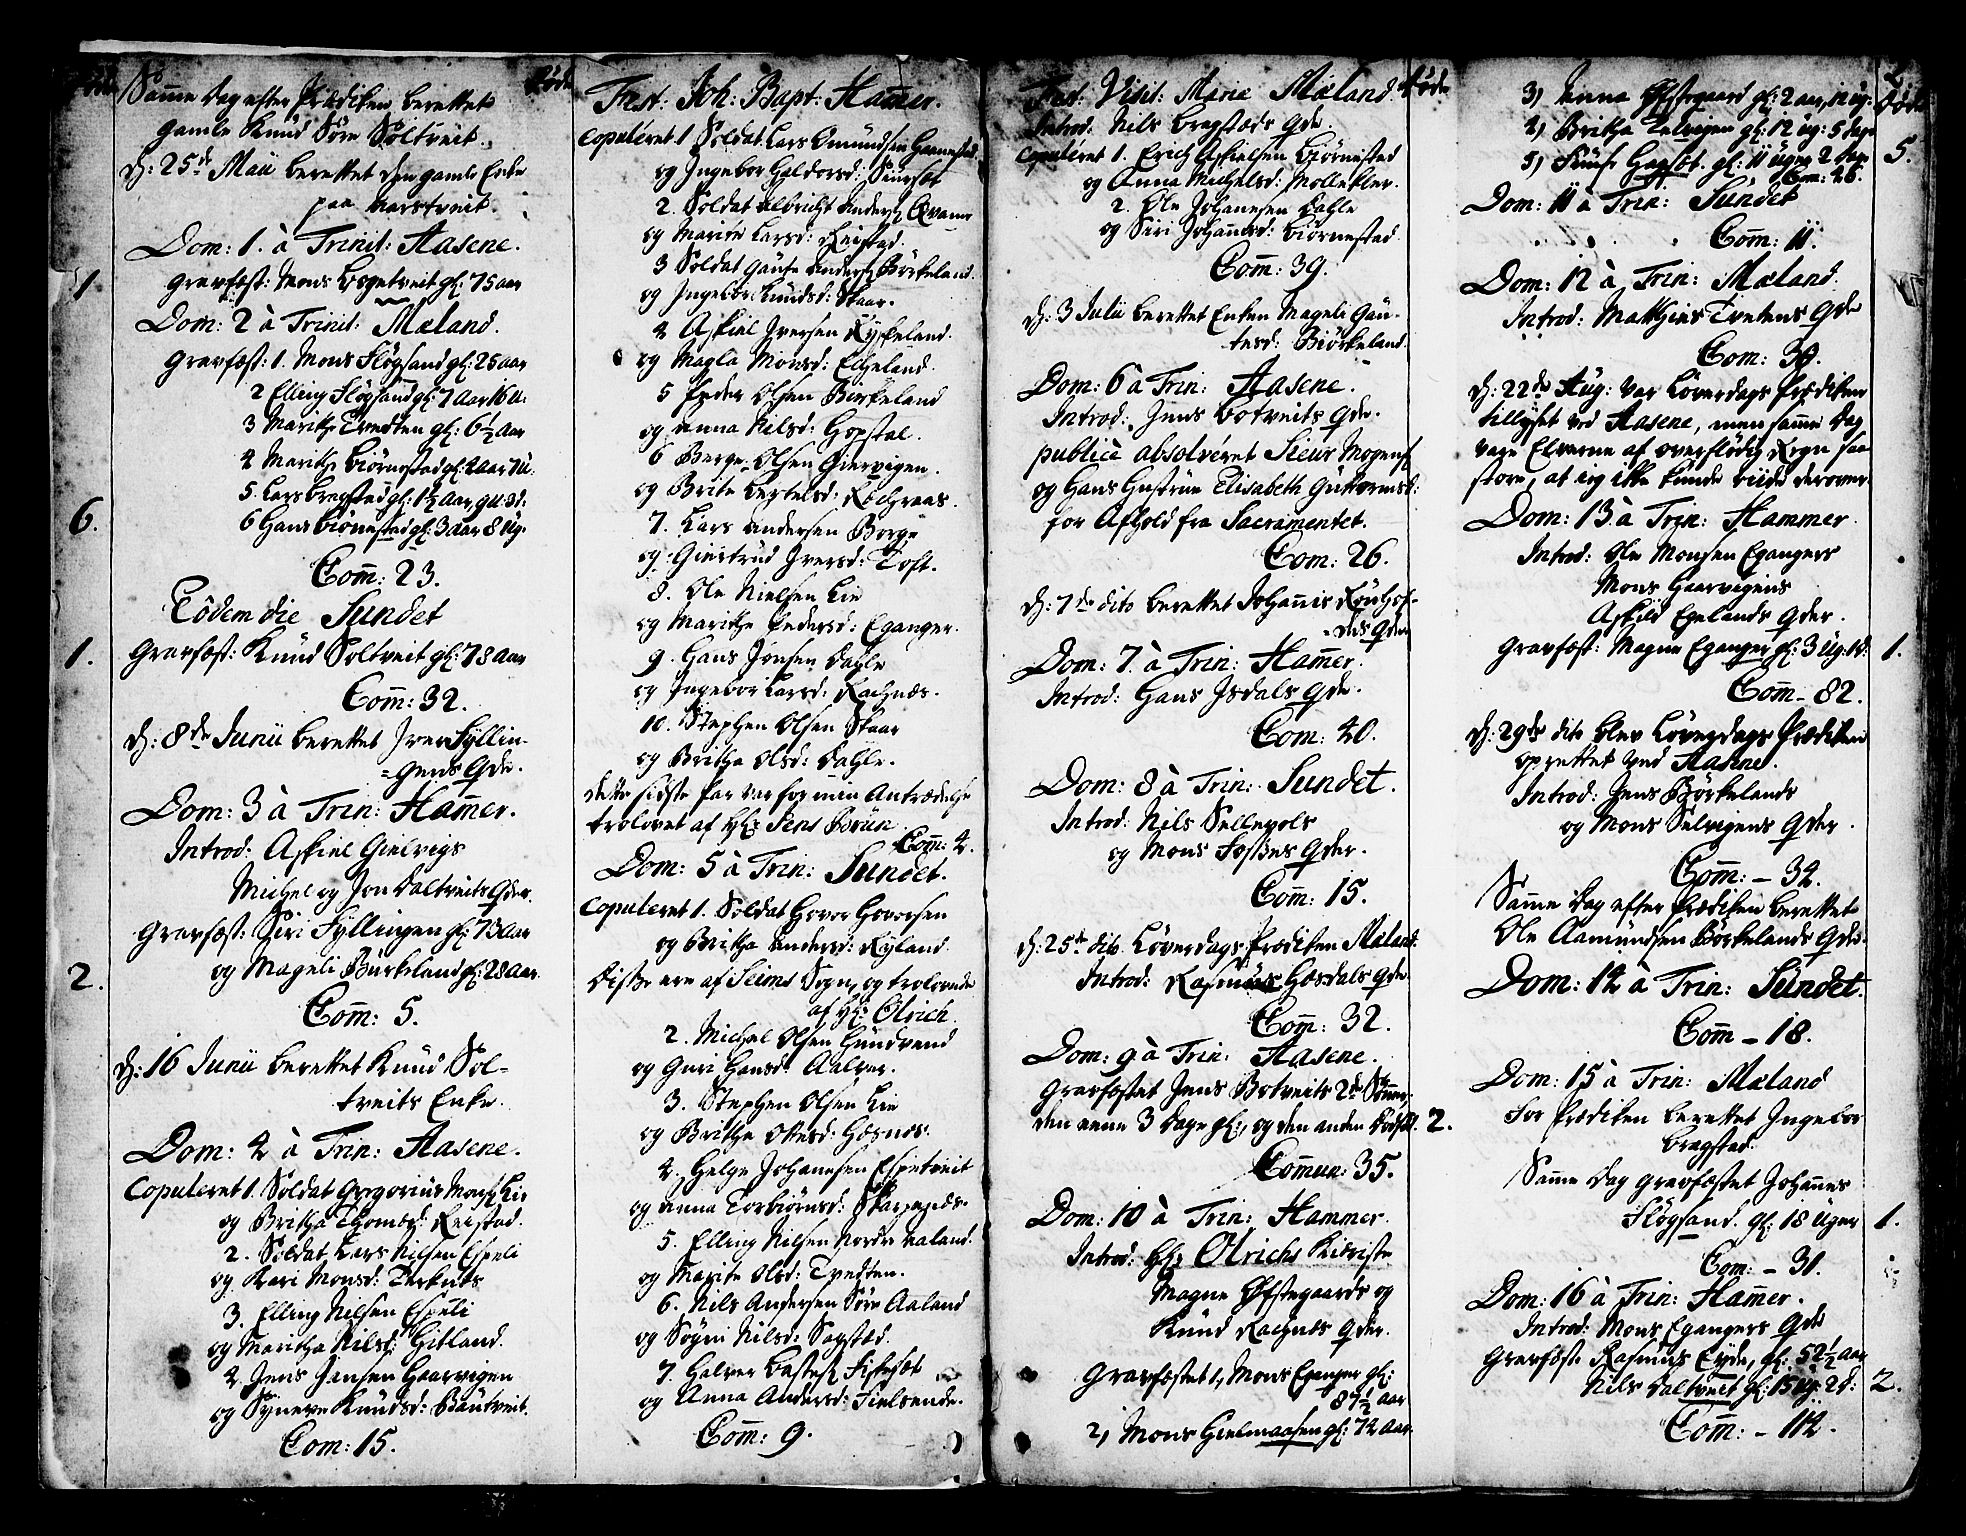 Døde
Samme Dag efter Prædiken berettet
gamle Knud Søre Soltveit.
d: 25de Maii berettet den gamle Enke
paa Narstveit.
Dom: 1. à Trinit: Aasene.
1. Gravfæst: Mons Bogetveit gl: 75 aar
Dom: 2 à Trinit: Mæland.
Gravfæst: 1. Mons Fløgsand gl: 25 aar
2 Elling Fløgsand gl: 7 Aar 16 U:
3 Marithe Tvedten gl: 6½ Aar
4 Marithe Biørnestad gl: 2 aar 7 U:
5. Lars Bragstad gl: 1½ Aar, 9 U. 3 d:
6. 6 Hans Biørnestad gl: 3 aar 8 Ug.
Com̄: 23.
Eôdem die Sundet
1. Gravfæst: Knud Soltveit gl: 78 Aar
Com̄: 32.
d: 8de Junii berettet Iver Syllin-
=gens Qde.
Dom: 3 à Trin: Ham̄er.
Introd: Askiel Gielvigs
Michel og Jon Daltveits Qder.
Gravfæst: Siri Syllingen gl: 73 Aar
2. og Mageli Bürkeland gl: 28 Aar.
Com̄: 5.
d: 16 Junii berettet Knud Sol-
tveits Enke.
Dom: 4 à Trin: Aasene.
Copuleret 1. Soldat Gregorius Mons: Lie
og Britha Thomæsd: Reistad.
2. Soldat Lars Nilsen Espeli
og Kari Monsd:
3. Elling Nilsen Espeli
og Maritha Nilsd: Gitland.
4. Jens Jansen Haarvigen
og Synneve Knudsd: Bautveit.
Com: 15.
Døde
Fest: Joh: Bapt: Ham̄er.
Copuleret 1 Soldat Lars Omundsen
og Ingebor Haldorsd:
2. Soldat Albricht Anders: Qvamme
og Marite Larsd: Reistad.
3 Soldat Gaute Anders: Börkeland
og Ingebor Knudsd: Skaar.
4 Askiel Iversen Ryskeland.
og Magla Monsd: Eikeland.
5 Peder Olsen Birkeland
og Anna Nilsd: Hopstal.
6 Børge Olsen Giervigen.
og Brite Bertelsd:
7. Lars Andersen Borge
og Giertrud Iversd: Toft.
8. Ole Nielsen Lie
og Marithe Pedersd: Eganger.
9. Hans Jonsen Dahle
og Ingebor Larsd: Rachnæs.
10. Stephen Olsen Skaar
og Britha Olsd: Dahle.
dette sidste Par var for min Antrædelse
trolovet af Hr: Jens Bruun.
Com̄: 4.
Dom: 5 à Trin: Sundet.
Copuleret 1. Soldat Havor Havorsen
og Britha Andersd: Ryland.
Disse ere af Seims Sogn, og trolovede
af Hr: Olrich.
2. Michal Olsen Hundvend
og Guri Hansd: Aalvær.
3. Stephen Olsen Lie
og Brithe Ottesd: Hosnæs.
4. Helge Johannesen Espetveit
og Anna Torbiørnsd:
5. Elling Nilsen Nordre Aaland
og Marite Olsd: Tvedten.
6. Nils Andersen Søre Aaland
og Sygni Nilsd: Sagstad.
7. Halver
og Anna Andersd: Fielsende.
Com̄: 9.
Døde
Fest: Visit: Mariæ Mæland.
Introd: Nils Bragstads Qde.
Copuléret 1. Erich Askielsen Biørnestad
og Anna Michelsd:
2. Ole Johannesen Dahle
og Siri Johannisd: Biørnestad.
Com̄: 39.
d: 3 Julii berettet Enken Mageli Gau-
tesd: Biørkeland.
Dom: 6 à Trin: Aasene.
Introd: Jens Botveits Qde.
publicè absolvéret Sieur Mogens:
og Hans Hustrue Elisabeth Guttormsd:
for Afhold fra Sacramentet.
Com: 26.
d: 7de dito berettet Johannis
des Qde.
Dom: 7. à Trin: Ham̄er.
Introd: Hans Isdals Qde.
Com: 40.
Dom: 8 à Trin: Sundet.
Introd: Nils Sellevols
og Mons Fosses Qder.
Com̄: 15.
d: 25de dito Løverdags Prædiken Mæland.
Introd: Rasmus Hosdals Qde.
Com̄: 32.
Dom: 9 à Trin: Aasene.
Gravfæstet Jens Botveits 2de Sønner,
den eene 3 Dage gl:, og den anden dødfød. 2.
Commun: 35.
Dom: 10 à Trin: Hammer.
Introd: Hr: Olrichs Kieriste
Magne Øfstegaards og
Knud Rachnæs Qder.
Gravfæstet 1, Mons Eganger gl:
87½ Aar
2, Mons Hielmaasen gl: 74 Aar.
2
Døde
3, Anna Øfstegaard gl: 2 aar, 12 ug:
4, Britha gl: 12 Ug: 5 dage
5, Knut gl: 11 Uger 2 dage 5.
Com: 26.
Dom: 11 à Trin: Sundet
Com̄: 11.
Dom: 12 à Trin: Mæland.
Introd: Matthies Tvetens Qde
Com: 38.
d: 22de Aug: var Løverdags Prædiken
tillyset ved Aasene, men samme Dag
vare Elverne af overflødig Regn saa
store, at ieg ikke kunde riide derover.
Dom: 13 à Trin: Hammer.
Introd: Ole Monsen Egangers
Mons Haarvigens
Askild Egelands Qder.
Gravfæst: Magne Eganger gl: 3 Ug. 1 d: 1.
Com̄ - 82.
d: 29de dito blev Løverdags Prædiken
oprettet ved Aasene.
Introd: Jens Börkelands
og Mons Selvigens Qder.
Com̄: - 32.
Samme Dag efter Prædiken berettet
Ole Aamundsen Börkelands Qde.
Dom: 14 à Trin: Sundet.
Com̄ - 18.
Dom: 15 à Trin: Mæland
For Prædiken berettet Ingebor
Bragstad.
Samme Dag gravfæstet Johannes
Fløgsand. gl: 18 Uger 1.
Com: - 31.
Dom: 16 à Trin: Ham̄er.
Introd: Mons Egangers Qde
Gravføste Rasmus Eyde, gl: 52½ Aar
Nils Daltveit gl: 15 Ug: 2 d: 2.
Com̄: - 114.